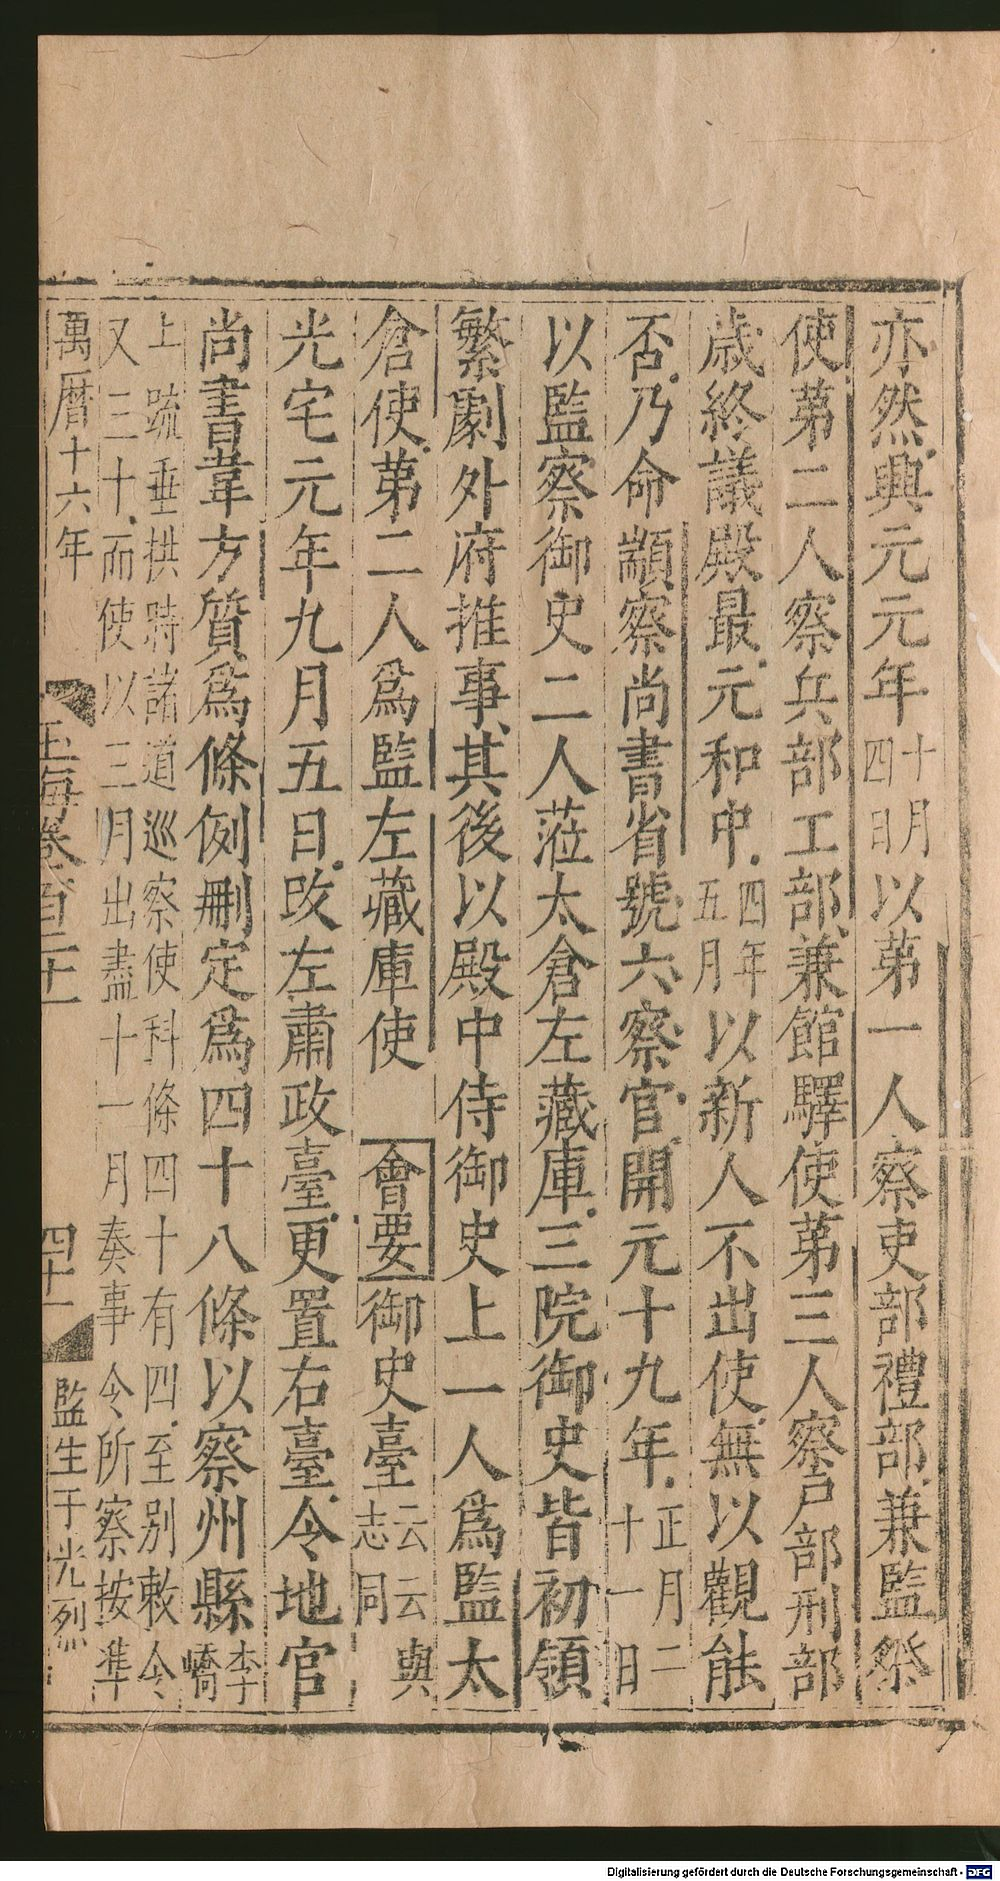 亦然興元元年十月四日以第一人察吏部禮部兼監祭
使第二人察兵部工部兼館驛使第三人察戶部刑部
歳終議殿最元和中四年五月以新人不出使無以觀能
否乃命顓察尚書省號六察官開元十九年正月二十一日
以監察御史二人蒞太倉左藏庫三院御史皆初領
繁劇外府推事其後以殿中侍御史上一人爲監太
倉使第二人爲監左藏庫使會要御史臺云云與志同
光宅元年九月五日改左肅政臺更置右臺令地官
尚書韋方質爲條例刪定爲四十八條以察州縣李嶠
上疏垂拱時諸道巡察使科條四十有四至別敕令
又三十而使以三月出盡十一月奏事令所察按準
萬曆十六年
玉海卷百二十一
四十一
監生于光烈
Digitalisierung gefördert durch die Deutsche Forschungsgemeinschaft - DFG